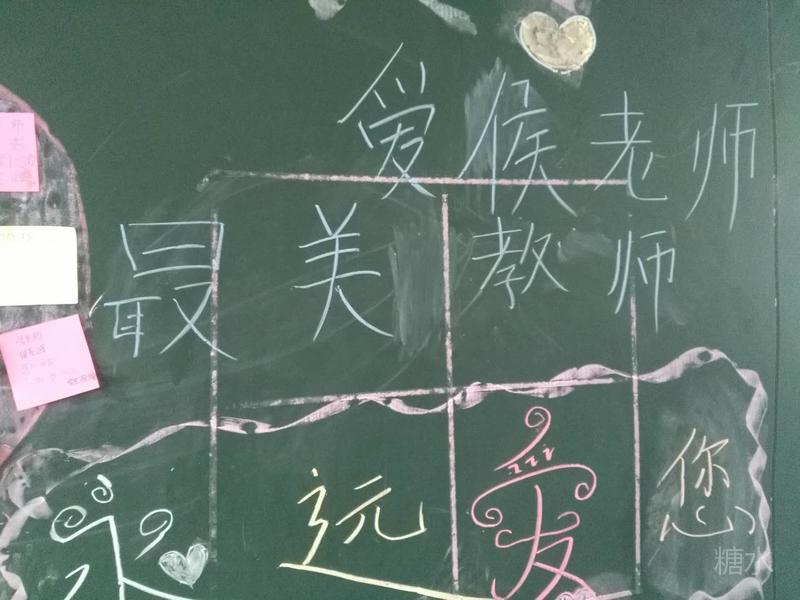 爱候老师
最美教师
永远爱您
糖水